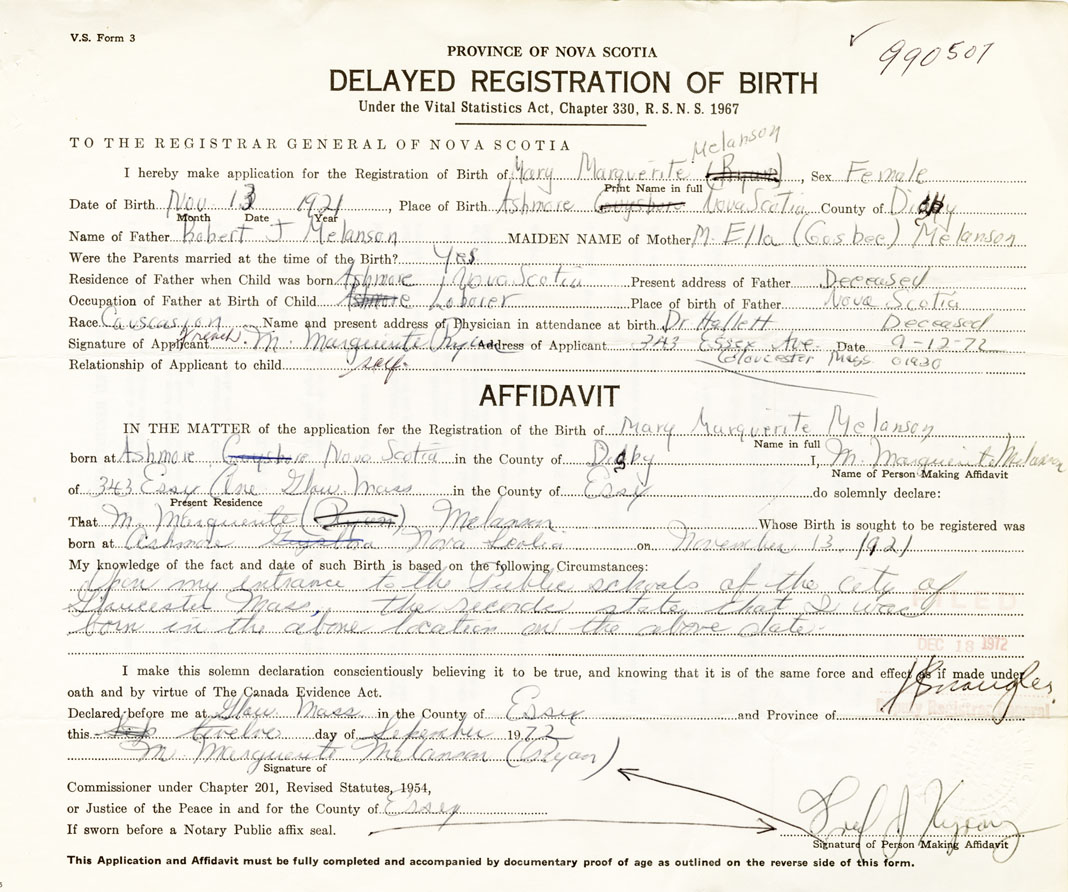 V.S. Form 3
990507
PROVINCE OF NOVA SCOTIA
DELAYED REGISTRATION OF BIRTH
Under the Vital Statistics Act, Chapter 330, R.S.N.S. 1967
TO THE REGISTRAR GENERAL OF NOVA SCOTIA
Melanson
I hereby make application for the Registration of Birth of Mary Marguerite (Ryan), Sex Female
Print Name in full
Date of Birth Nov 13 1921, Place of Birth Ashmore Guysboro Nova Scotia County of Digby
Month Date Year
Name of Father Robert J Melanson MAIDEN NAME of Mother M. Ella (Gosbee) Melanson
Were the Parents married at the time of the Birth? Yes
Residence of Father when Child was born Ashmore, Nova Scotia Present address of Father Deceased
Occupation of Father at Birth of Child Ashmore Laborer Place of birth of Father Nova Scotia
Race Causcasion Name and present address of Physician in attendance at birth Dr Hallett Deceased
French.
Signature of Applicant M. Marguerite Ryan Address of Applicant 343 Essex Ave. Date 9-12-72
Gloucester Mass 01930
Relationship of Applicant to child self.
AFFIDAVIT
IN THE MATTER of the application for the Registration of the Birth of Mary Marguerite Melanson
Name in full
born at Ashmore, Guysboro Nova Scotia in the County of Digby I, M. Marguerite Melanson
Name of Person Making Affidavit
of 343 Essex Ave Glou Mass in the County of Essex do solemnly declare:
Present Residence
That M. Marguerite (Ryan) Melanson Whose Birth is sought to be registered was
born at Ashmore Guysboro Nova Scotia on November 13, 1921
My knowledge of the fact and date of such Birth is based on the following Circumstances:
Upon my entrance to the Public schools of the city of
Gloucester Mass, the records state that I was
born in the above location on the above date.
DEC 18 1972
I make this solemn declaration conscientiously believing it to be true, and knowing that it is of the same force and effect as if made under
oath and by virtue of The Canada Evidence Act.
Declared before me at Glou Mass in the County of Essex and Province of
Deputy Registrar General
this twelve day of September 1972
M. Marguerite Melanson (Ryan)
Signature of
Commissioner under Chapter 201, Revised Statutes, 1954,
or Justice of the Peace in and for the County of Essex
If sworn before a Notary Public affix seal.
Signature of Person Making Affidavit
This Application and Affidavit must be fully completed and accompanied by documentary proof of age as outlined on the reverse side of this form.